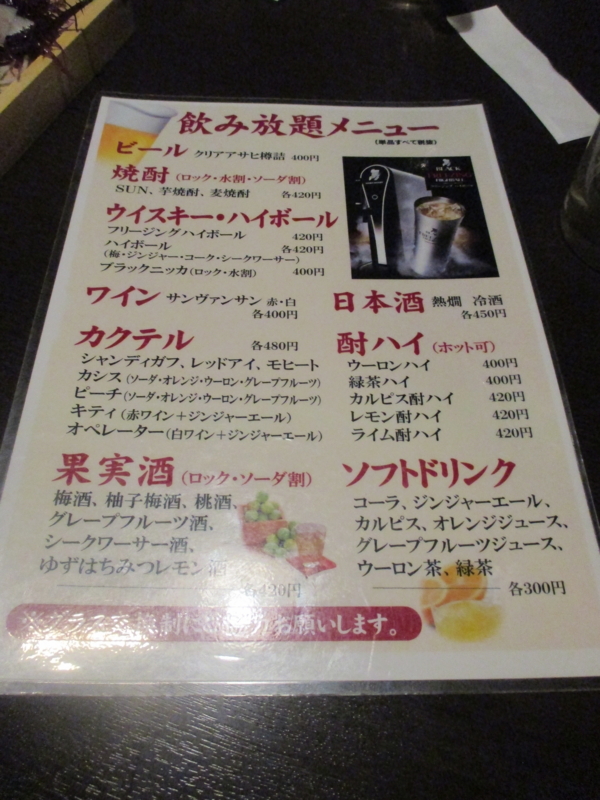 飲み放題メニュー
(単品すべて税抜)
ビール クリアアサヒ樽詰 400円
焼酎(ロック・水割・ソーダ割)
SUN、芋焼酎、麦焼酎 各420円
ウイスキー・ハイボール
フリージングハイボール 420円
ハイボール 各420円
(梅・ジンジャー・コーク・シークワーサー)
ブラックニッカ(ロック・水割) 400円
ワイン サンヴァンサン 赤・白
各400円
日本酒 熱燗 冷酒
各450円
カクテル 各480円
シャンディガフ、レッドアイ、モヒート
カシス(ソーダ・オレンジ・ウーロン・グレープフルーツ)
ピーチ(ソーダ・オレンジ・ウーロン・グレープフルーツ)
キティ(赤ワイン+ジンジャーエール)
オペレーター(白ワイン+ジンジャーエール)
酎ハイ(ホット可)
ウーロンハイ 400円
緑茶ハイ 400円
カルピス酎ハイ 420円
レモン酎ハイ 420円
ライム酎ハイ 420円
果実酒(ロック・ソーダ割)
梅酒、柚子梅酒、桃酒、
グレープフルーツ酒、
シークワーサー酒、
ゆずはちみつレモン酒
各420円
ソフトドリンク
コーラ、ジンジャーエール、
カルピス、オレンジジュース、
グレープフルーツジュース、
ウーロン茶、緑茶
各300円
※グラス お願いします。
BLACK